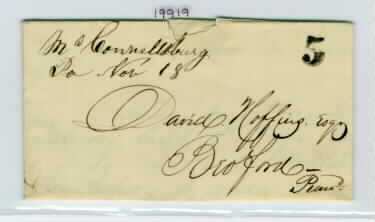 19919
McConnellsburg
Pa Nov 18
5
David Hoffius Esqr
Bedford
Penna